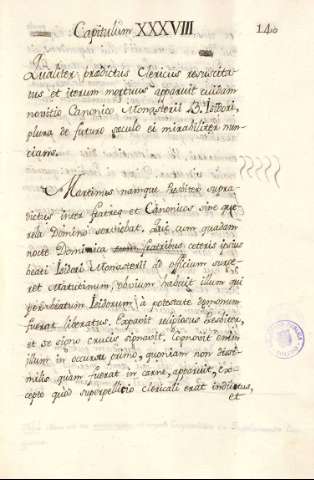 Capitulum XXXVIII.
140
Qualiter predictus Clericus resuscita-
tus et iterum mortuus apparuit cuidam
novitio Canonico Monasterii B. Isidori,
plura de futuro seculo ei mirabiliter nun-
cians.
Martinus namque Presbiter supra-
dictus inter fratres et Canonicos sine que-
rela Domino serviebat. Qui cum quadam
nocte Dominica fratribus ceteris ipsius
beati Isidori Monasterii ad officium surge-
ret Matutinum, obvium habuit illum qui
per beatum Isidorum à potestate demonum
fuerat liberatus. Expavit religiosus Presbiter,
et se signo crucis signavit. Cognovit enim
illum in occursu primo, quoniam non dissi-
milis quam fuerat in carne, apparuit, ex-
cepto quod superpellicio clericali erat indutus,
et